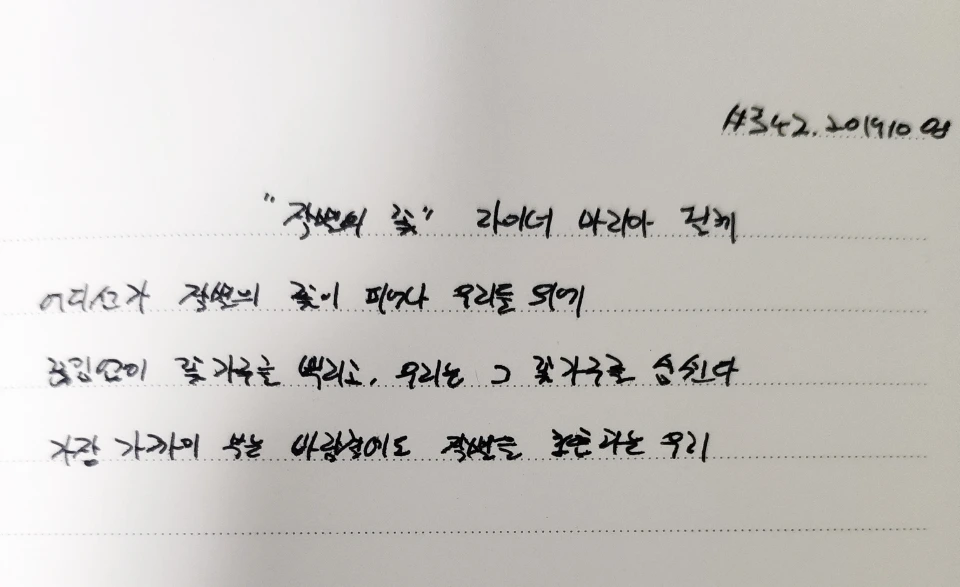 #342. 201910
"작별의 꽃" 라이너 마리아 릴케
어디선가 작별의 꽃이 피어나 우리들 위에
끊임없이 꽃가루를 뿌리고, 우리는 그 꽃가루를 숨쉰다
가장 가까이 부는 바람결에도 작별을 호흡하는 우리